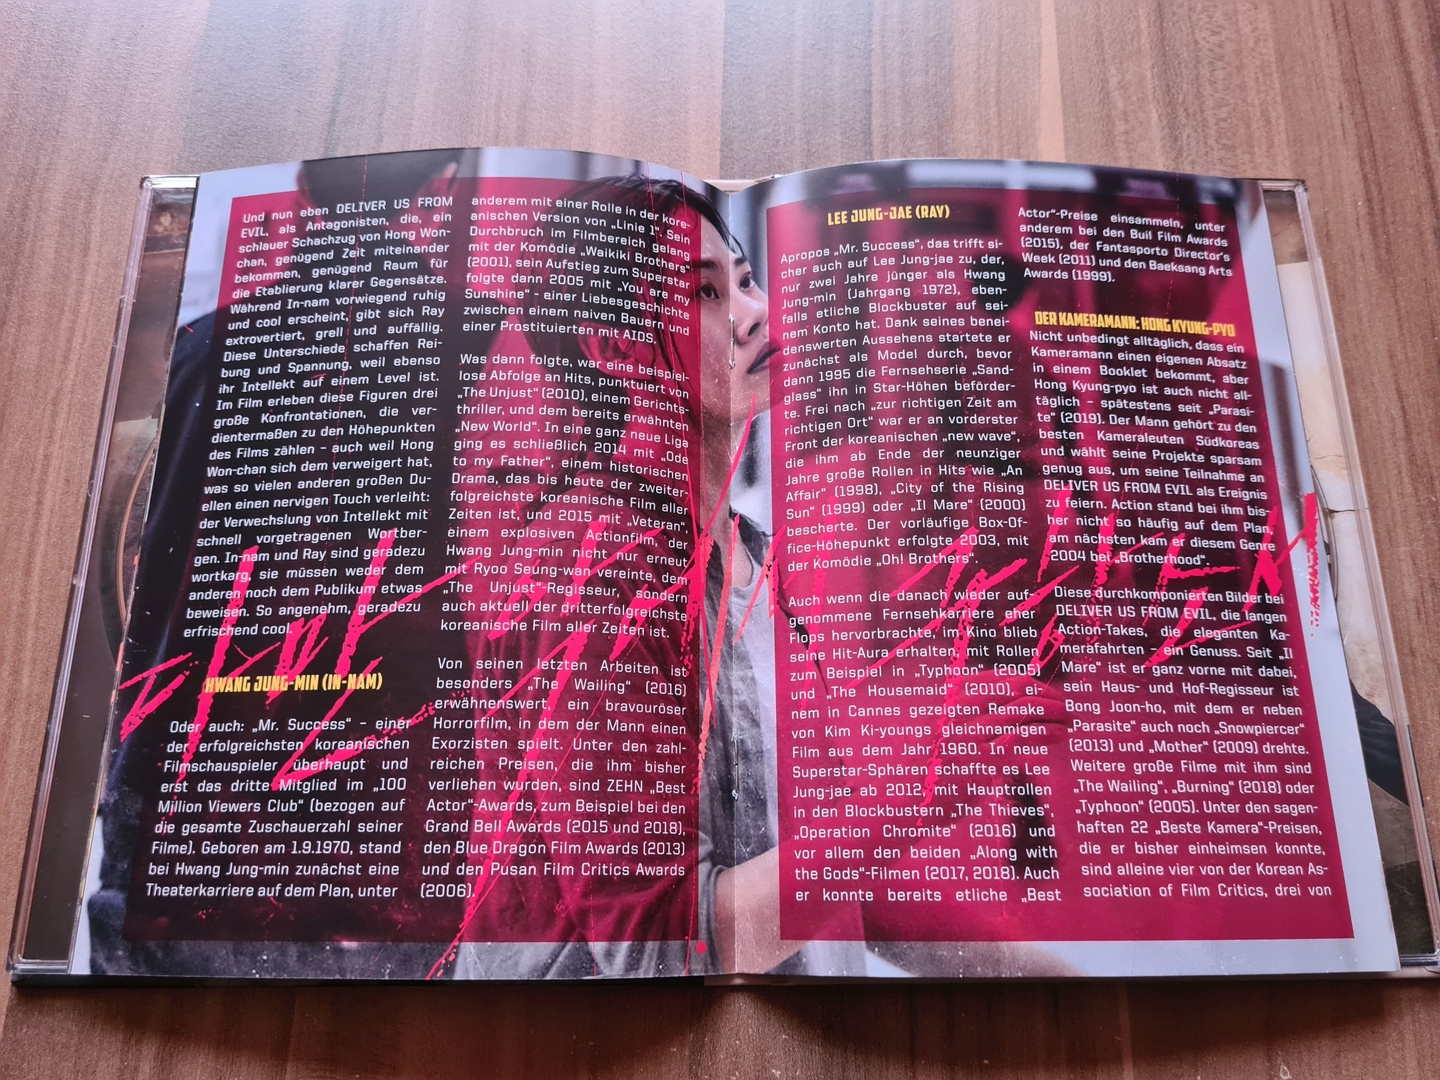 Und nun eben DELIVER US FROM
EVIL, als Antagonisten, die, ein
schlauer Schachzug von Hong Won-
chan, genügend Zeit miteinander
bekommen, genügend Raum für
die Etablierung klarer Gegensätze.
Während In-nam vorwiegend ruhig
und cool erscheint, gibt sich Ray
extrovertiert, grell und auffällig.
Diese Unterschiede schaffen Rei-
bung und Spannung, weil ebenso
ihr Intellekt auf einem Level ist.
Im Film erleben diese Figuren drei
große Konfrontationen, die ver-
dientermaßen zu den Höhepunkten
des Films zählen – auch weil Hong
Won-chan sich dem verweigert hat,
was so vielen anderen großen Du-
ellen einen nervigen Touch verleiht:
der Verwechslung von Intellekt mit
schnell vorgetragenen Wortber-
gen. In-nam und Ray sind geradezu
wortkarg, sie müssen weder dem
anderen noch dem Publikum etwas
beweisen. So angenehm, geradezu
erfrischend cool.
HWANG JUNG-MIN (IN-NAM)
Oder auch: „Mr. Success“ – einer
der erfolgreichsten koreanischen
Filmschauspieler überhaupt und
erst das dritte Mitglied im „100
Million Viewers Club“ (bezogen auf
die gesamte Zuschauerzahl seiner
Filme). Geboren am 1.9.1970, stand
bei Hwang Jung-min zunächst eine
Theaterkarriere auf dem Plan, unter
anderem mit einer Rolle in der kore-
anischen Version von „Linie 1“. Sein
Durchbruch im Filmbereich gelang
mit der Komödie „Waikiki Brothers“
(2001), sein Aufstieg zum Superstar
folgte dann 2005 mit „You are my
Sunshine“ – einer Liebesgeschichte
zwischen einem naiven Bauern und
einer Prostituierten mit AIDS.
Was dann folgte, war eine beispiel-
lose Abfolge an Hits, punktuiert von
„The Unjust“ (2010), einem Gerichts-
thriller, und dem bereits erwähnten
„New World“. In eine ganz neue Liga
ging es schließlich 2014 mit „Ode
to my Father“, einem historischen
Drama, das bis heute der zweiter-
folgreichste koreanische Film aller
Zeiten ist, und 2015 mit „Veteran“,
einem explosiven Actionfilm, der
Hwang Jung-min nicht nur erneut
mit Ryoo Seung-wan vereinte, dem
„The Unjust“-Regisseur, sondern
auch aktuell der dritterfolgreichste
koreanische Film aller Zeiten ist.
Von seinen letzten Arbeiten ist
besonders „The Wailing“ (2016)
erwähnenswert, ein bravouröser
Horrorfilm, in dem der Mann einen
Exorzisten spielt. Unter den zahl-
reichen Preisen, die ihm bisher
verliehen wurden, sind ZEHN „Best
Actor“-Awards, zum Beispiel bei den
Grand Bell Awards (2015 und 2018),
den Blue Dragon Film Awards (2013)
und den Pusan Film Critics Awards
(2006).
LEE JUNG-JAE (RAY)
Apropos „Mr. Success“, das trifft si-
cher auch auf Lee Jung-jae zu, der,
nur zwei Jahre jünger als Hwang
Jung-min (Jahrgang 1972), eben-
falls etliche Blockbuster auf sei-
nem Konto hat. Dank seines benei-
denswerten Aussehens startete er
zunächst als Model durch, bevor
dann 1995 die Fernsehserie „Sand-
glass“ ihn in Star-Höhen beförder-
te. Frei nach „zur richtigen Zeit am
richtigen Ort“ war er an vorderster
Front der koreanischen „new wave“,
die ihm ab Ende der neunziger
Jahre große Rollen in Hits wie „An
Affair“ (1998), „City of the Rising
Sun“ (1999) oder „Il Mare“ (2000)
bescherte. Der vorläufige Box-Of-
fice-Höhepunkt erfolgte 2003, mit
der Komödie „Oh! Brothers“.
Auch wenn die danach wieder auf-
genommene Fernsehkarriere eher
Flops hervorbrachte, im Kino blieb
seine Hit-Aura erhalten, mit Rollen
zum Beispiel in „Typhoon“ (2005)
und „The Housemaid“ (2010), ei-
nem in Cannes gezeigten Remake
von Kim Ki-youngs gleichnamigen
Film aus dem Jahr 1960. In neue
Superstar-Sphären schaffte es Lee
Jung-jae ab 2012, mit Hauptrollen
in den Blockbustern „The Thieves“,
„Operation Chromite“ (2016) und
vor allem den beiden „Along with
the Gods“-Filmen (2017, 2018). Auch
er konnte bereits etliche „Best
Actor“-Preise einsammeln, unter
anderem bei den Buil Film Awards
(2015), der Fantasporto Director's
Week (2011) und den Baeksang Arts
Awards (1999).
DER KAMERAMANN: HONG KYUNG-PYO
Nicht unbedingt alltäglich, dass ein
Kameramann einen eigenen Absatz
in einem Booklet bekommt, aber
Hong Kyung-pyo ist auch nicht all-
täglich – spätestens seit „Parasi-
te“ (2019). Der Mann gehört zu den
besten Kameraleuten Südkoreas
und wählt seine Projekte sparsam
genug aus, um seine Teilnahme an
DELIVER US FROM EVIL als Ereignis
zu feiern. Action stand bei ihm bis-
her nicht so häufig auf dem Plan,
am nächsten kam er diesem Genre
2004 bei „Brotherhood“.
Diese durchkomponierten Bilder bei
DELIVER US FROM EVIL, die langen
Action-Takes, die eleganten Ka-
merafahrten – ein Genuss. Seit „Il
Mare“ ist er ganz vorne mit dabei,
sein Haus- und Hof-Regisseur ist
Bong Joon-ho, mit dem er neben
„Parasite“ auch noch „Snowpiercer“
(2013) und „Mother“ (2009) drehte.
Weitere große Filme mit ihm sind
„The Wailing“, „Burning“ (2018) oder
„Typhoon“ (2005). Unter den sagen-
haften 22 „Beste Kamera“-Preisen,
die er bisher einheimsen konnte,
sind alleine vier von der Korean As-
sociation of Film Critics, drei von